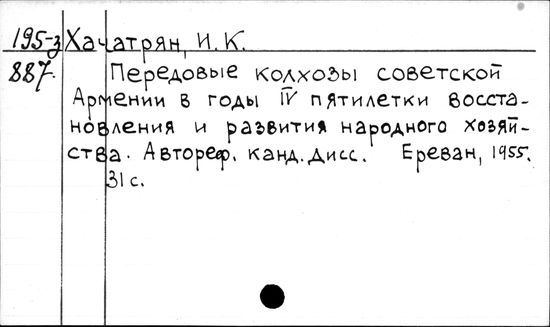 195-3 Хачатрян, И.К.
887. Передовые колхозы советской
Армении в годы IV пятилетки восста-
новления и развития народного хозяй-
ства. Автореф. канд. дисс. Ереван, 1955.
31 с.